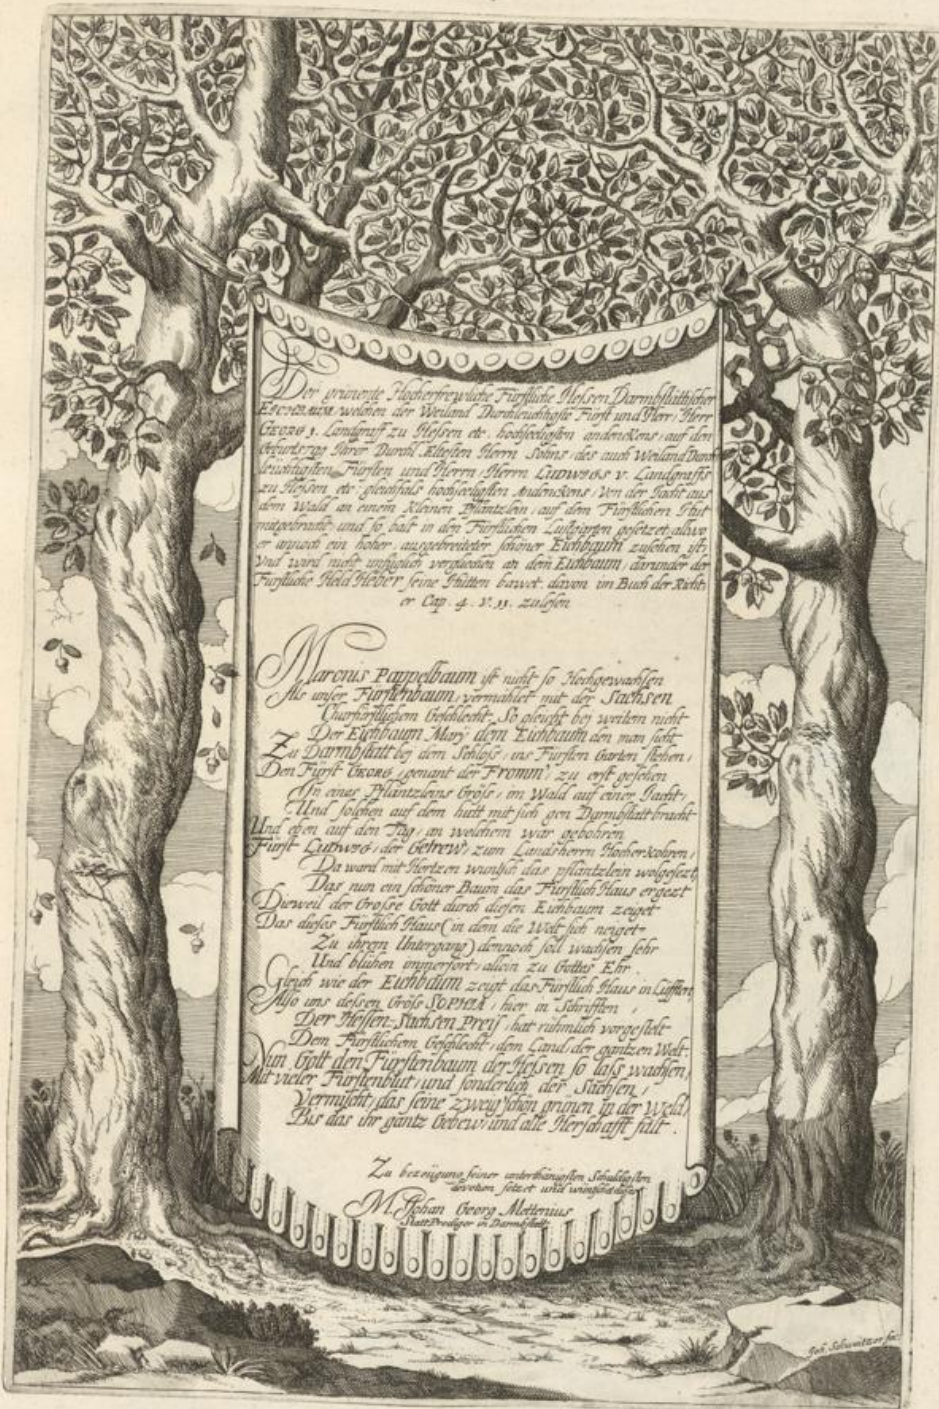 Der grünende Hocherfrewliche Fürstliche Hessen Darmbstattischer
EICHBAUM, welchen der Weiland Durchleuchtigste Fürst und Herr, Herr
GEORG I. Landgraff zu Hessen etc. hochseeligsten andenckens, auf den
Geburtstag Ihrer Durchl. Eltesten Herrn Sohns, des auch Weiland Durch
leuchtigsten Fürsten und Herrn, Herrn LUDWIGS V. Landgraffs
zu Hessen etc. gleichfals hochseeligsten Andenckens, von der Jacht aus
dem Wald an einem kleinen Pfläntzlein, auf dem Fürstlichen Hut
mitgebracht, und so balt in den Fürstlichen Lustgarten gesetzet, allwo
er annoch ein hoher, ausgebreiteter schöner Eichbaum zusehen ist,
Vnd wird nicht unfüglich verglichen an dem Eichbaum, darunder der
Fürstliche Held Heber seine Hütten bawet, davon im Buch der Richt,
er Cap. 4. V. 11. zulesen
Maronis Pappelbaum ist nicht so Hochgewachsen
Als unser Fürstenbaum, vermählet mit der Sachsen
Churfürstlichem Geschlecht. So gleicht bey weitem nicht
Der Eichbaum Marÿ dem Eichbaum den man sicht
Zu Darmbstatt bei dem Schloss, ins Fürsten Garten stehen,
Den Fürst GEORG, genant der Fromm, zu erst gesehen
In eines Pfläntzleins Gröss, im Wald auf einer Jacht,
Und solchen auf dem hutt mit sich gen Darmbstatt bracht
Und eben auf den Tag, an welchem war gebohren
Fürst LUDWIG, der Getrew, zum Landsherrn Hocherkohren,
Da ward mit Hertzen wuntsch das pfläntzlein wolgesetzt
Das nun ein schöner Baum das Fürstlich Haus ergezt
Dieweil der Grosse Gott durch diesen Eichbaum zeiget
Das dieses Fürstlich Haus (in dem die Welt sich neiget
Zu ihrem Untergang) dennoch soll wachsen sehr
Und blühen immerfort, allein zu Gottes Ehr.
Gleich wie der Eichbaum zeigt das Fürstlich Haus in Lüfften,
Also uns dessen Gröss SOPHIA, hier in Schrifften,
Der Hessen-Sachsen Preiss, hat rühmlich vorgestelt
Dem Fürstlichem Geschlecht, dem Land, der gantzen Welt.
Nun Gott den Fürstenbaum der Hessen so lass wachsen,
Mit vieler Fürstenblut, und sonderlich der Sachsen,
Vermischt, das seine zweig schön grünen in der Weld,
Bis das ihr gantz Gebew, und alle Herschafft fält.
Zu bezeügung seiner unterthänigsten Schuldigsten
devotion setzet und wüntschet dieses
M. Johan Georg Mettenius
Statt Prediger in Darmbstatt.
Joh. Schweitzer fec.